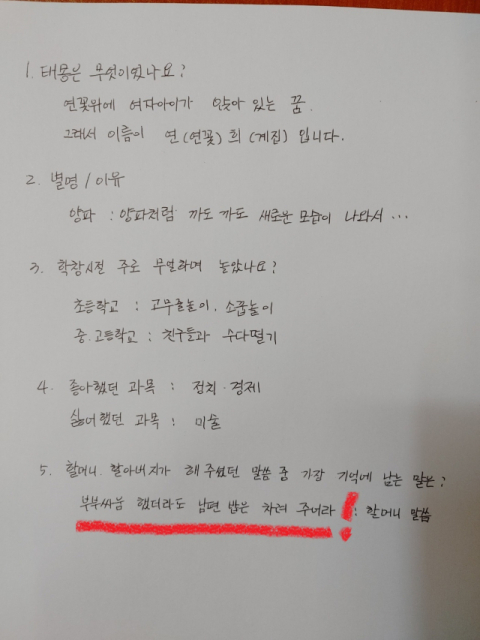 1. 태몽은 무엇이었나요?
연꽃위에 여자아이가 앉아 있는 꿈.
그래서 이름이 연(연꽃) 희(계집) 입니다.
2. 별명 / 이유
양파 : 양파처럼 까도 까도 새로운 모습이 나와서 ...
3. 학창시절 주로 무얼하며 놀았나요?
초등학교 : 고무줄놀이, 소꿉놀이
중.고등학교 : 친구들과 수다떨기
4. 좋아했던 과목 : 정치·경제
싫어했던 과목 : 미술
5. 할머니. 할아버지가 해 주셨던 말씀 중 가장 기억에 남는 말은?
부부싸움 했더라도 남편 밥은 차려 주어라! : 할머니 말씀